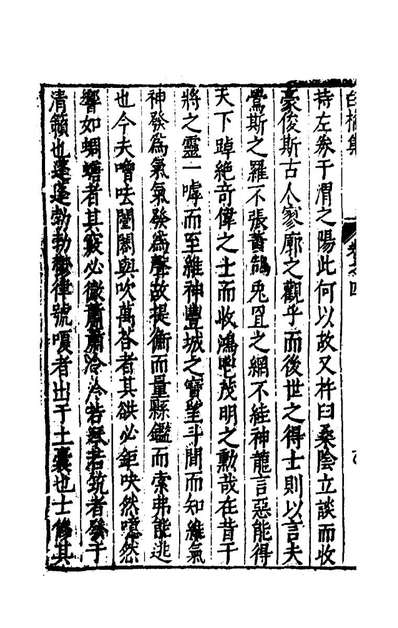 白榆集 卷之四
持左券于渭之陽此何以故又杵臼桑陰立談而收
豪俊斯古人寥廓之觀乎而後世之得士則以言夫
鷽斯之羅不張黃鵠兔罝之網不絓神龍言惡能得
天下踔絶奇偉之士而收鴻厖茂明之勳哉在昔干
將之靈一嘑而至維神豐城之寶望斗間而知維氣
神發爲氣氣發爲聲故提衡而量縣鑑而索弗能逃
也今夫噌吰闛闟與吹萬荅者其鉷必鉅吷然噫然
響如蜩螗者其竅必微蕭蕭泠泠若瑟若筑者發于
清籟也蓬蓬勃勃鬱律號嘳者出于土囊也士脩其